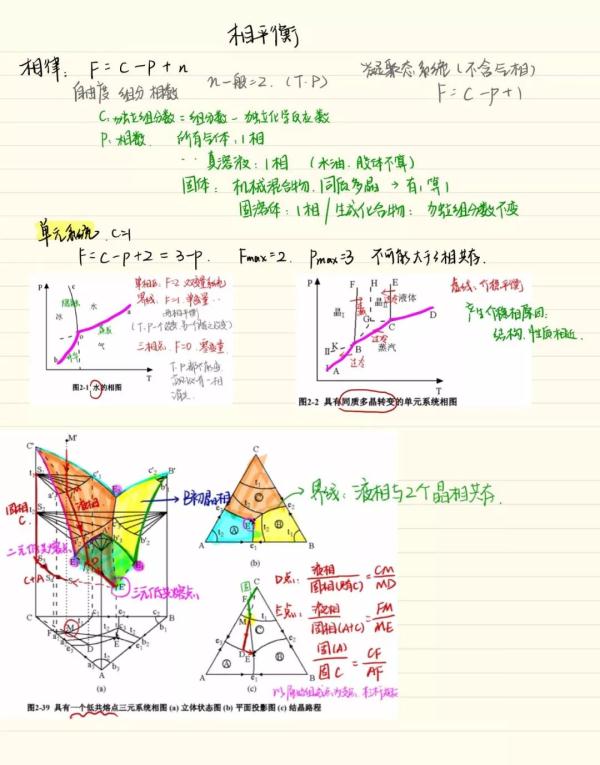 相平衡
相律: F=C-P+n
自由度 组分 相数
n一般=2. (T.P)
凝聚态系统(不含气相)
F=C-P+1
C:独立组分数=组分数-独立化学反应数
P:相数. 所有气体:1相
真溶液:1相 (水油.胶体不算)
固体: 机械混合物.同质多晶→有1算1
固溶体:1相/生成化合物: 独立组分数不变
单元系统. C=1
F=C-P+2=3-P. Fmax=2. Pmax=3 不可能大于3相共存.
P
c
水
冰
a
o
气
b
T
图2-1 水的相图
单相区:F=2 双变量系统
界线:F=1.单变量
两相平衡
三相点:F=0.零变量
P
F H E
晶I
晶II
液体
G
D
C
II
K
B
I
蒸汽
过冷
A
T
图2-2 具有同质多晶转变的单元系统相图
虚线:介稳平衡
产生介稳相原因:
结构.性质相近.
C'
M'
B'
液相
固相
C.
二元低共熔点
C+A
三元低共熔点
B初晶相
C
M
D
B
A
(a)
C
A
B
(b)
界线:液相与2个晶相共存.
C
固
F
M
D
E
A
B
(c)
D点: 液相/固相(C)=CM/MD
E点: 液相/固相(A+C)=FM/ME
固(A)/固C=CF/AF
图2-39 具有一个低共熔点三元系统相图 (a) 立体状态图 (b) 平面投影图 (c) 结晶路程